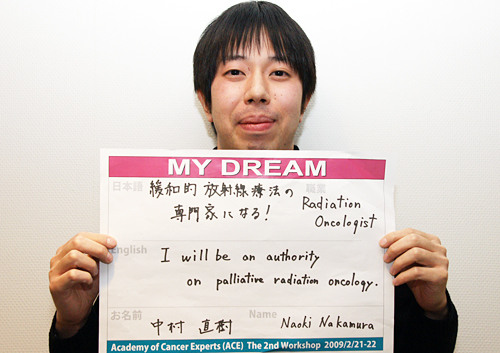 MY DREAM
日本語
緩和的 放射線療法の
専門家になる!
職業
Radiation
Oncologist
English
I will be an authority
on palliative radiation oncology.
お名前
中村 直樹
Name
Naoki Nakamura
Academy of Cancer Experts (ACE) The 2nd Workshop 2009/2/21-22